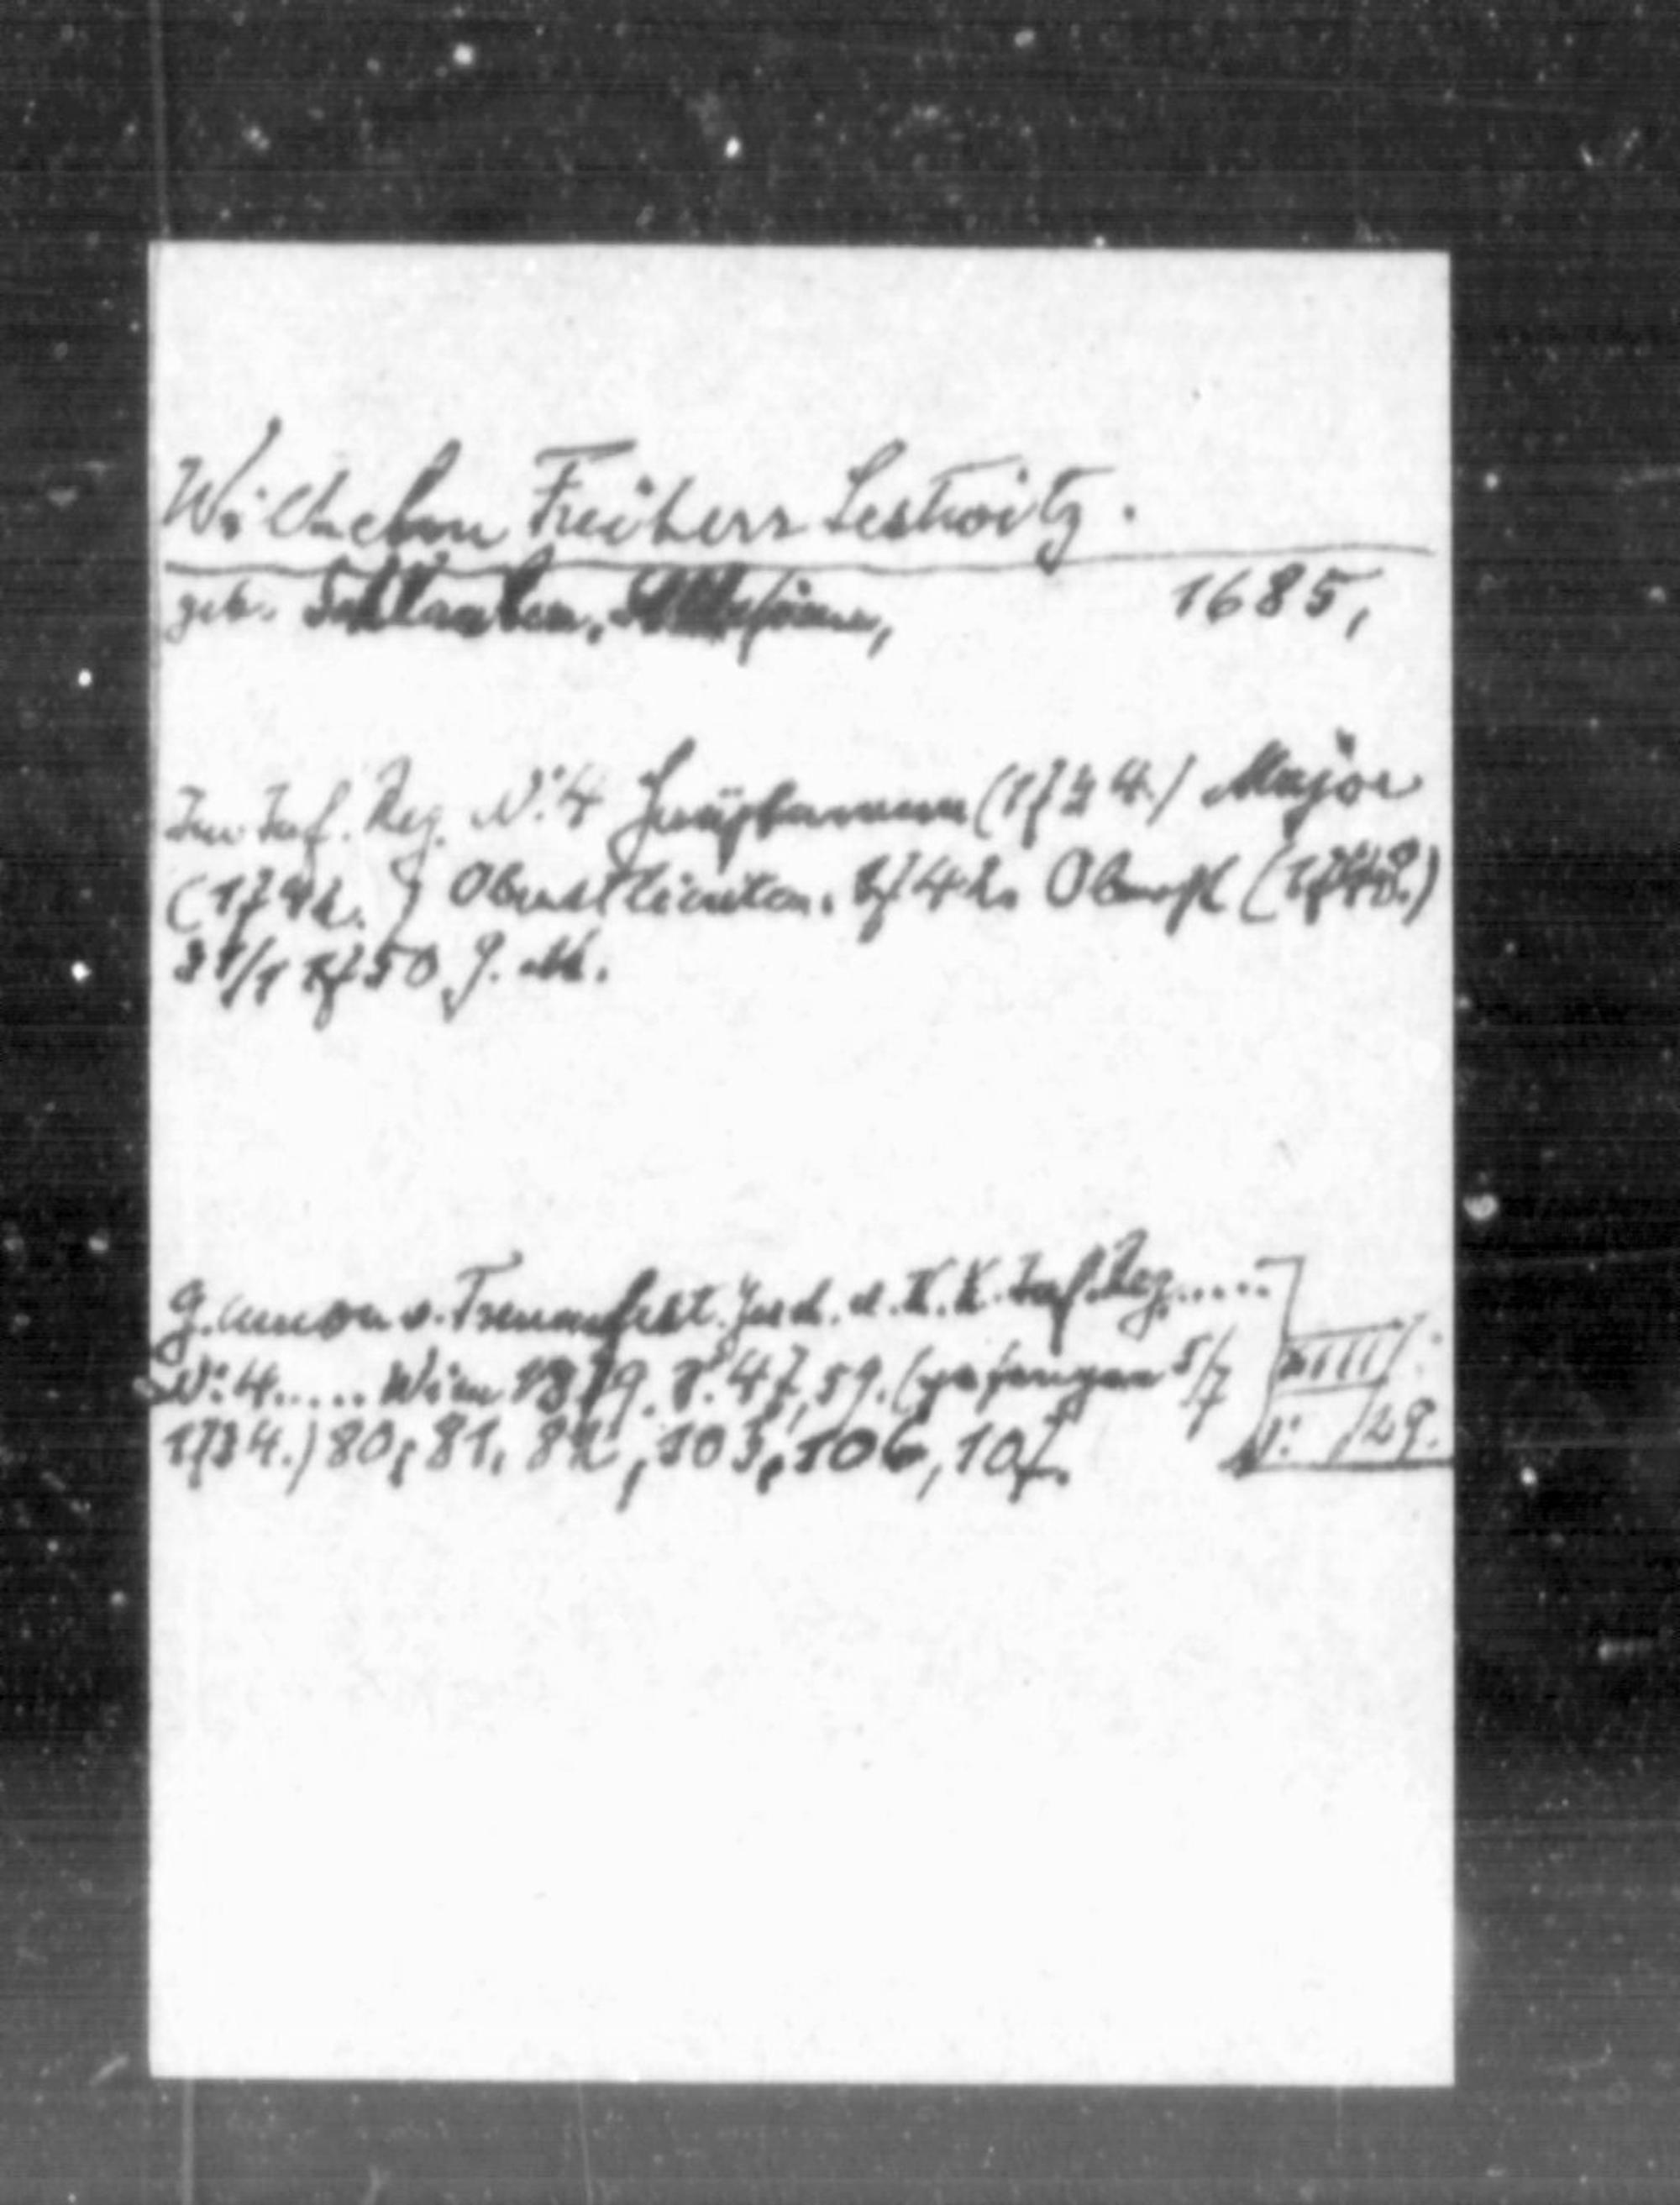 Wilhelm Freiherr Lestwitz.
geb. 1685,
Im Inf. Reg. N: 4 Hauptmann (1724.) Major
Oberstlieuten. 1742. Oberst
1750 G. M.
G. Amon v. Treuenfest. Gesch. d. K. K. Inf. Reg.....
N: 4..... Wien 1879. S. 47, 59. (gefangen 5/7
1734.) 80, 81, 82, 103, 106, 107.
N: 29.